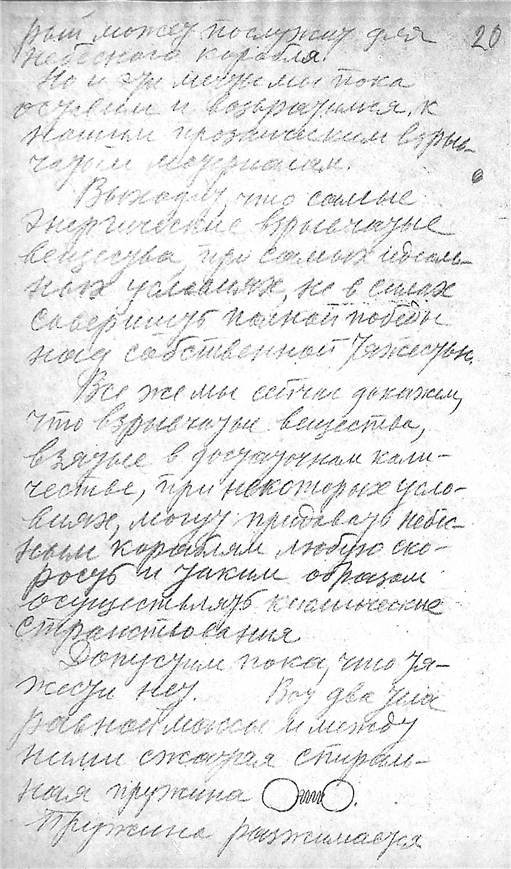 рый может послужит для 20
небесного корабля.
Но и эти мечты мы пока
оставим и возвратимся к
нашим прозаическим взрыв-
чатым материалам.
Выходит, что самые
энергические взрывчатые
вещества, при самых идеаль-
ных условиях, не в силах
совершить полной победы
над собственной тяжестью.
Все же мы сейчас докажем,
что взрывчатые вещества,
взятые в достаточном коли-
честве, при некоторых усло-
виях, могут придавать небес-
ным кораблям любую ско-
рость и таким образом
осуществлять космические
странствования
Допустим пока, что тя-
жести нет. Вот два тела
равной массы и между
ними сжатая спираль-
ная пружина
Пружина разжимается